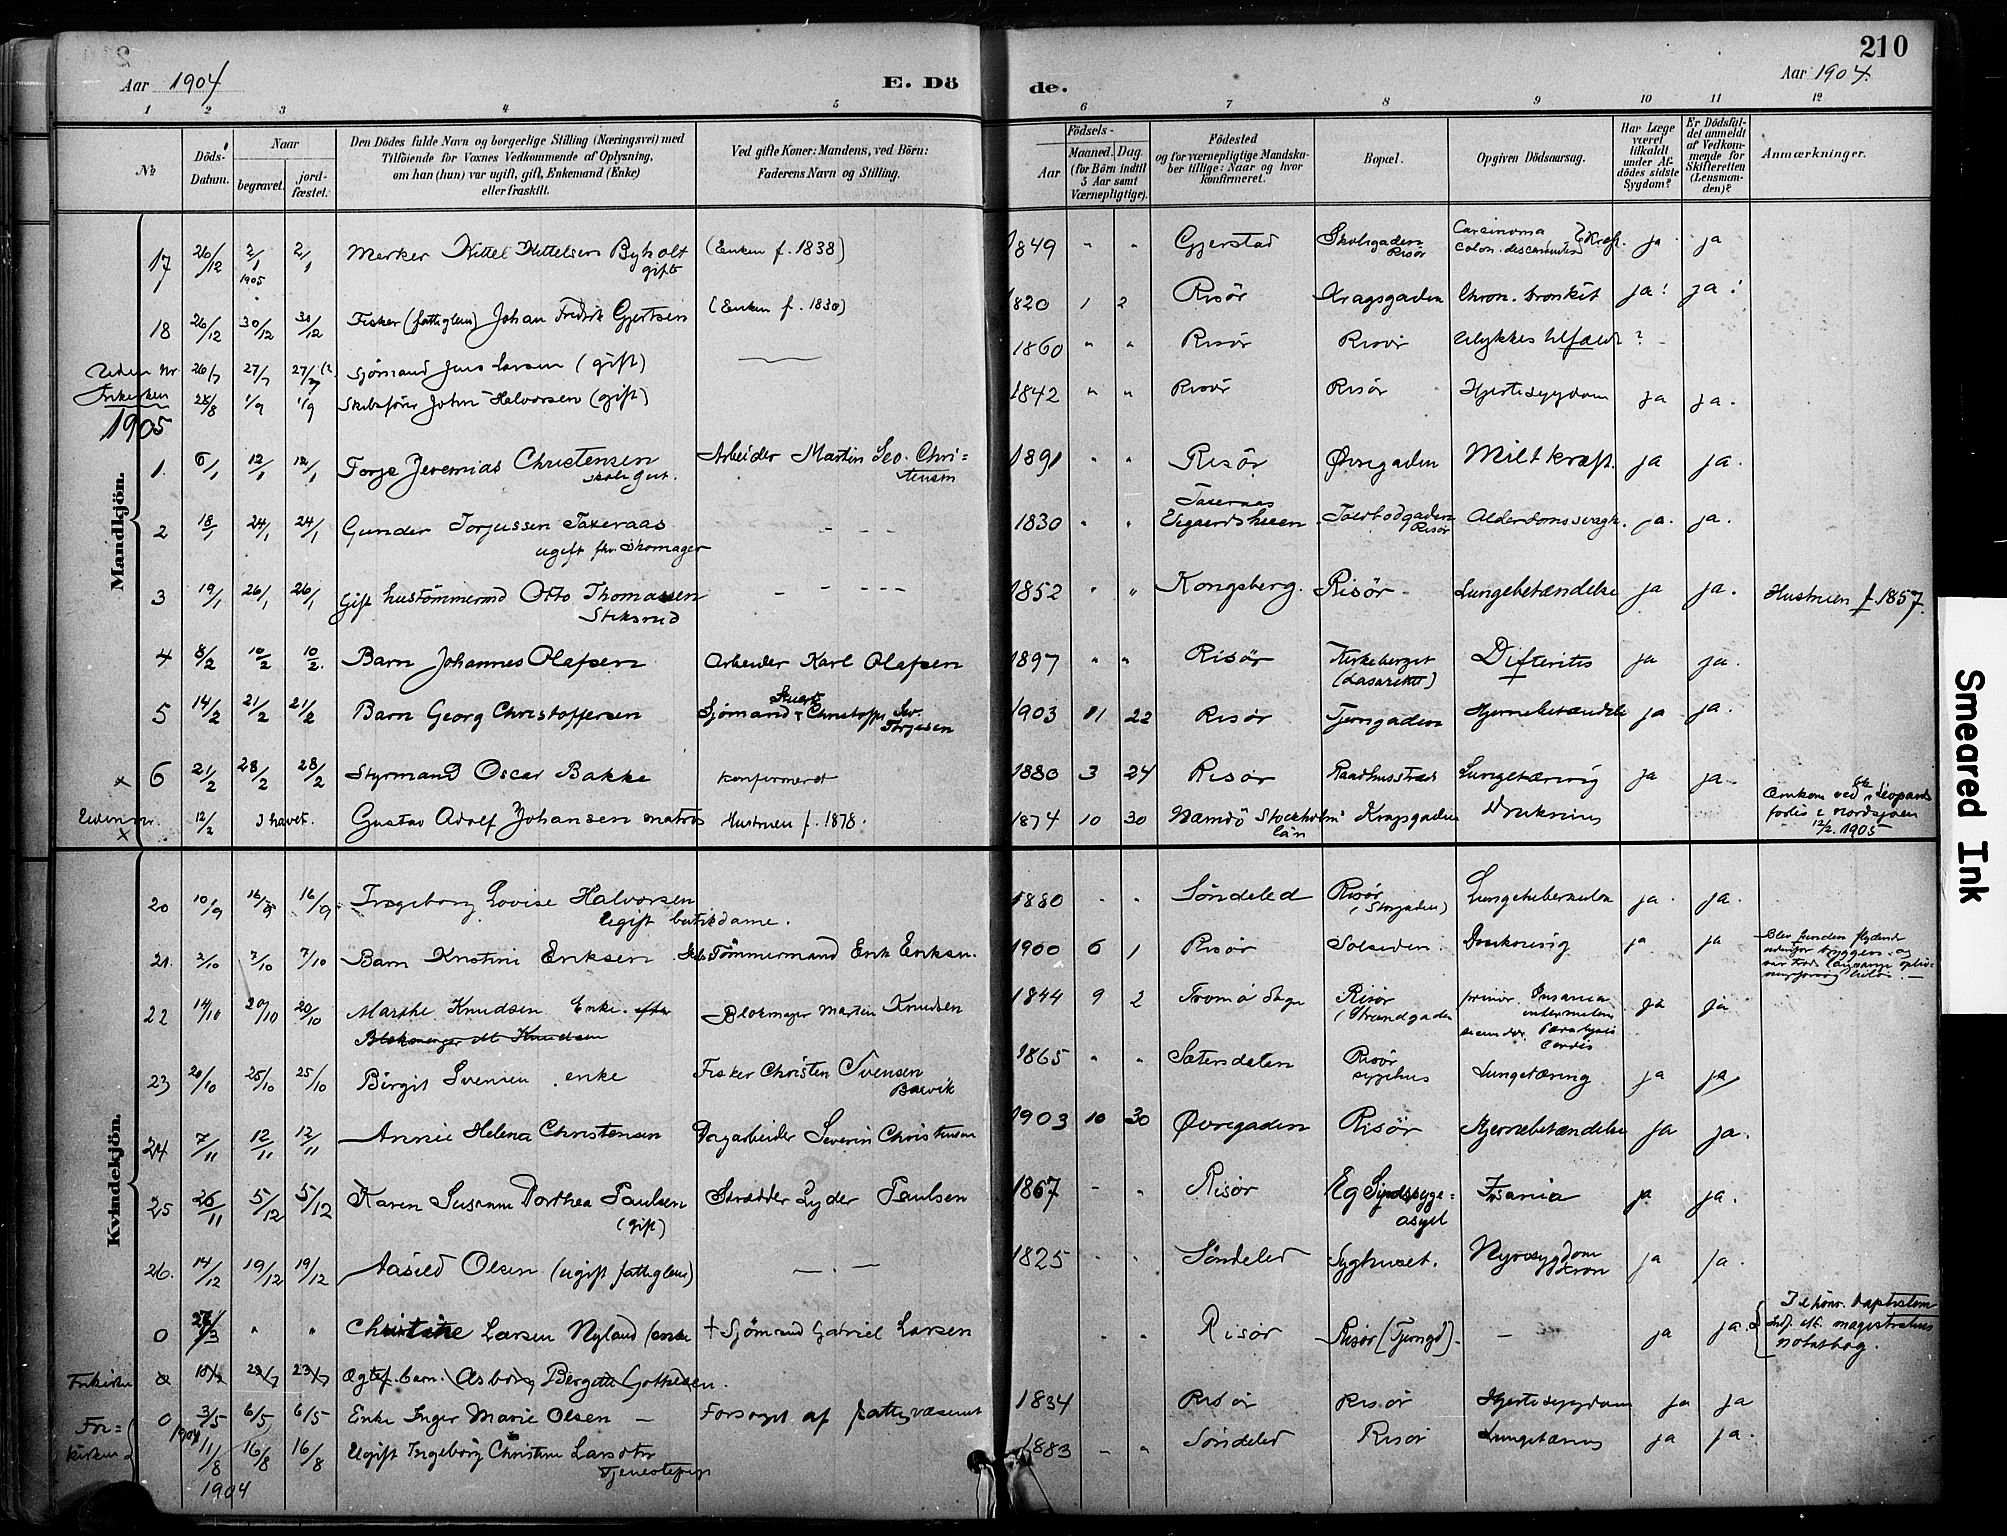 210
Aar 1904 E. Dö de. Aar 1904.
1 2 3 4 5 6 7 8 9 10 11 12
No
Döds-Datum.
Naar
begravet.
jordfæstet.
Den Dödes fulde Navn og borgerlige Stilling (Næringsvei) med
Tilföiende for Voxnes Vedkommende af Oplysning,
om han (hun) var ugift, gift, Enkemand (Enke)
eller fraskilt.
Ved gifte Koner: Mandens, ved Börn:
Faderens Navn og Stilling.
Födsels-
Aar
Maaned. Dag.
(for Börn indtil
5 Aar samt
Værnepligtige).
Födested
og for værnepligtige Mandska-
ber tillige: Naar og hvor
konfirmeret.
Bopæl.
Opgiven Dödsaarsag.
Har Læge
været
tilkaldt
under Af-
dödes sidste
Sygdom?
Er Dödsfal-
det anmeldt
af Vedkom-
mende for
Skifteretten
(Lensman-
den)?
Anmærkninger.
Mandkjön.
17 26/12 2/1 1905 2/1 Kittel Kittelsen Byholt gift (Enken f. 1838) 1849 " " Gjerstad Skolegaden Risör Carcinoma Colon descendens Kræft. ja ja
18 26/12 30/12 30/12 Fisker (fattiglem) Johan Fredrik Gjertsen (Enken f. 1830) 1820 1 2 Risör Kragsgaden Chron. bronkit ja! ja!
Uden Nr 26/7 27/7 27/7 (?) Sjömand Jens Larsen (gift) 1860 " " Risör Risör Ulykkestilfælde ?
Frikirken 28/8 1/9 1/9 Skibsförer John Halvorsen (gift) 1842 " " Risör Risör Hjertesygdom ja ja.
1905
1. 6/1 12/1 12/1 Torje Jeremias Christensen skolegut. Arbeider Martin Sev. Christensen 1891 " " Risör Øvregaden Miltkræft. ja ja.
2 18/1 24/1 24/1 Gunder Torjussen Taxeraas ugift fhv. Skomager - - - 1830 " " Toldbodgaden Risör Alderdomssvagh. ja. ja.
3 19/1 26/1 26/1 Gift hustömmermd Otto Thomassen Stiksrud - - - - 1852 " " Kongsberg. Risör Lungebetændelse ja ja. Hustruen f. 1857.
4 8/2 10/2 10/2. Barn Johannes Olafsen Arbeider Karl Olafsen 1897 " " Risör Kirkeberget (Lasarettet) Difteritis ja ja.
5 14/2 21/2 21/2 Barn Georg Christoffersen Sjömand Christoffer Sev. Torjesen 1903 11 22 Risör Tjengaden Hjernebetændelse ja ja.
x 6 21/2 28/2 28/2 Styrmand Oscar Bakke konfirmeret 1880 3 24 Risör Raadhusstræd Lungetæring ja ja.
Uden nr. x 12/2 I havet. Gustav Adolf Johansen matros Hustruen f. 1878. 1874 10 30 Namdö Stockholms län Kragsgaden Drukning Omkom ved Leopards forlis i Nordsjøen 12/2 1905
Kvindekjön.
20 10/9 16/9 16/9 Ingeborg Lovise Halvorsen Ugift butikdame. 1880 . . Söndeled Risör (Storgaden) Lungetuberkulose ja. ja.
21. 2/10 7/10 7/10 Barn Kristine Eriksen Tömmermand Erik Eriksen. 1900 6 1 Risör Solsiden. Drukning ja ja Blev funden flydende udenfor bryggen og var trods
22 14/10 20/10 20/10 Marthe Knudsen Enke efter Blokmager Martin Knudsen 1844 9 2 Tromö Sogn Risör (Strandgaden primær. Insania intermittens secundær Paralysis Cordis ja ja
23 20/10 25/10 25/10 Birgit Svensen enke Fisker Christen Svensen Barvik 1865 " " Sætersdalen Risör sygehus Lungetæring. ja ja
24 7/11 12/11 12/11 Annie Helena Christensen Dagarbeider Severin Christensen 1903 10 30 Øvregaden Risör Hjernebetændelse ja ja.
25 26/11 5/12 5/12 Karen Susanne Dorthea Paulsen (gift) Skrædder Lyder Paulsen 1867 - " Risör Eg Sindssygeasyl Insania ja ja.
26. 14/12 19/12 19/12 Aasild Olsen (ugift fattiglem) 1825 " " Söndeled Syghuset. Nyresygdom kron ja ja.
0 " " Christine Larsen Nyland (enke † Sjömand Gabriel Larsen " " Risör Risör (Tjengd). - ja ja. magistratens notatbog.
Frikirken 23/7 Ægtef. barn. (Asborg Bergitte Gottfredsen.
0 3/5 6/5 6/5 Enke Inger Marie Olsen - Forsorget af fattigvæsenet 1834 Risör Risör Hjertesygdom ja ja
Frikirken 1904 11/8 16/8 16/8 Ugift Ingeborg Christine Larsdtr Tjenestepige 1883 - " Söndeled Risör Lungetæring ja ja.
1904
Smeared Ink